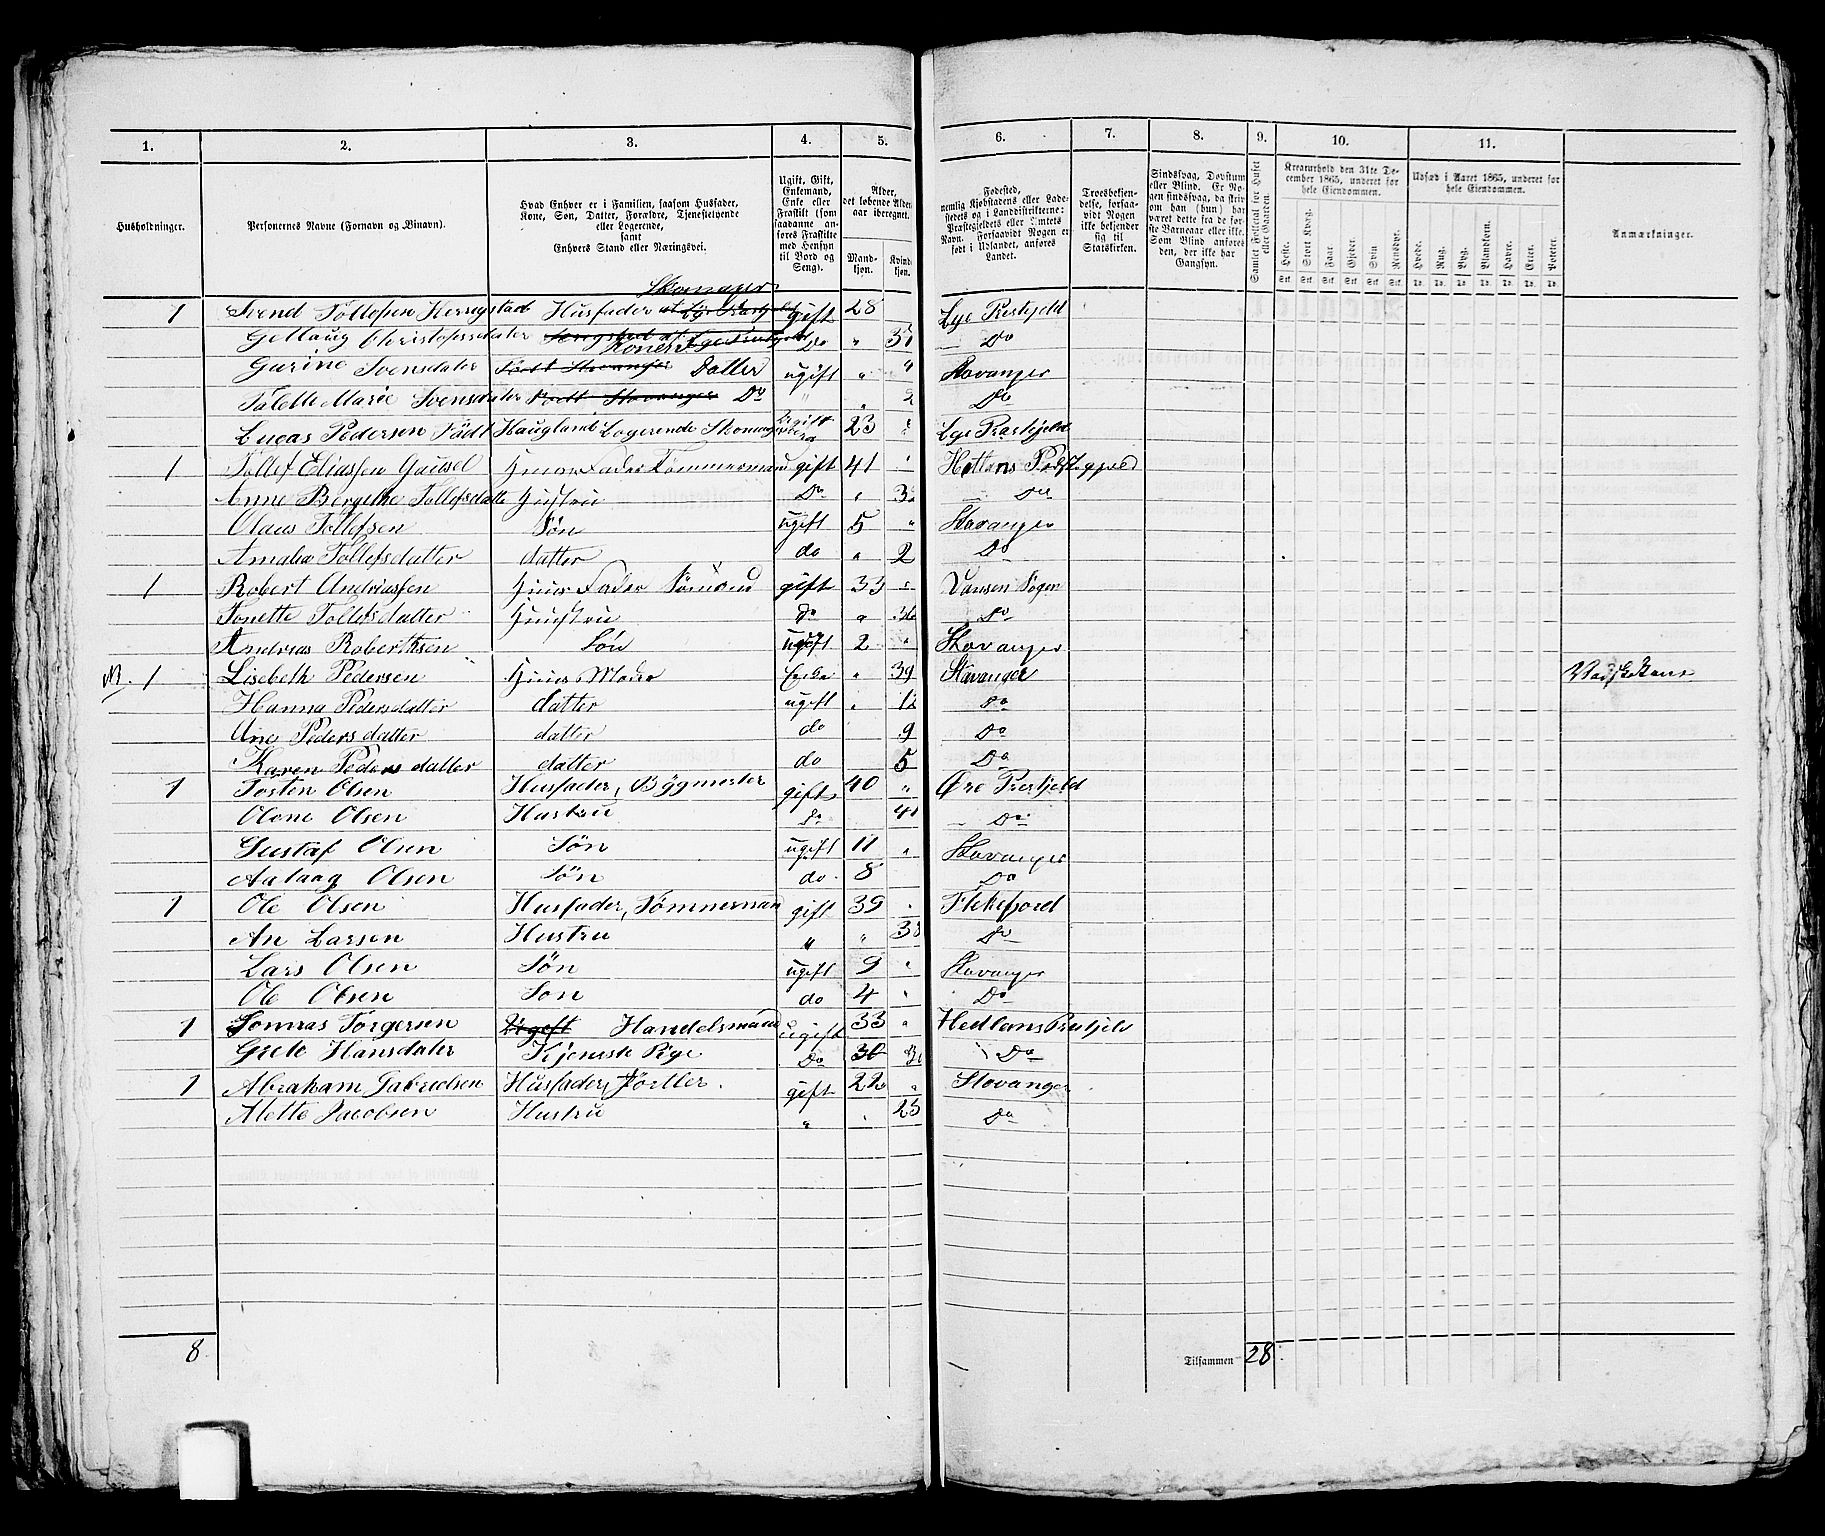 1. 2. 3. 4. 5. 6. 7. 8. 9. 10. 11.
Husholdninger.
Personernes Navne (Fornavn og Binavn).
Hvad Enhver er i Familien, saasom Husfader, Kone, Søn, Datter, Forældre, Tjenestetyende eller Logerende, samt Enhvers Stand eller Næringsvei.
Ugift, Gift, Enkemand, Enke eller Fraskilt (som saadanne anføres Fraskilte med Hensyn til Bord og Seng).
Alder, det løbende Alders-aar iberegnet.
Mandkjøn. Kvindekjøn.
Fødested, nemlig Kjøbstadens eller Ladestedets og i Landdistrikterne: Præstegjeldets eller Amtets Navn. Forsaavidt Nogen er født i Udlandet, anføres Landet.
Troesbekjendelse, forsaavidt Nogen ikke bekjender sig til Statskirken.
Sindssvag, Døvstum eller Blind. Er Nogen sindssvag, da skrives om han (hun) har været dette fra de første Barneaar eller ikke. Som Blind anføres den, der ikke har Gangsyn.
Samlet Folketal for Huset eller Gaarden.
Kreaturhold den 31te December 1865, underet for hele Eiendommen.
Heste. Stort Kvæg. Faar. Gjeder. Svin Rensdyr.
Udsæd i Aaret 1865, underet for hele Eiendommen.
Hvede. Rug. Byg. Blandkorn. Havre. Erter. Poteter.
Anmærkninger.
Skomager
1 Svend Tollefsen Husfader gift 28 Lye Prestjeld
Christofersdater Kone Do " Do
Gurine Svensdater Datter ugift " Stavanger
Marie Svensdater Do " Do
Lucas Pedersen Født Haugland Logerende Ugift 23 " Lye Prestjeld
1 Tollef Eliassen Huus Fader Tømmermand gift 41 "
Anne Bergethe Tollefsdatter Huustru Do " Do
Olaus Tollefsen Søn ugift 5 " Stavanger
Amalia Tollefsdatter datter do " 2 Do
1 Robert Andriassen Huus Fader Sømand gift 33 " Vansen Sogen
Tonette Tollefsdatter Huustru Do " 36 Do
Andreas Roberthsen Søn ugift 2 " Stavanger
1 Lisebeth Pedersen Huus Moder Enke " 39 Stavanger
Hanna Pedersdatter datter ugift " 12 Do
Ane Pedersdatter datter do 9 Do
Karen Pedersdatter datter do 5 Do
1 Tosten Olsen Husfader, Bygmester gift 40 " Øre Prestjeld
Olene Olsen Hustru Do Do
Gustaf Olsen Søn ugift 11 " Stavanger
Aalaag Olsen Søn do 8 Do
1 Ole Olsen Husfader, Tømmerman gift 39 " Flekefjord
An Larsen Hustru " " 38 Do
Lars Olsen Søn ugift 9 " Stavanger
Ole Olsen Søn do 4 " Do
1 Tomas Torgersen Ugift Handelsmand ugift 33 " Hetlans Prestjeld
Grete Hansdater Tjeneste Pige Do 30 Do
1 Abraham Gabrielsen Husfader, gift 22 " Stavanger
Alette Jacobsen Hustru " " 23 Do
8
Tilsammen 28